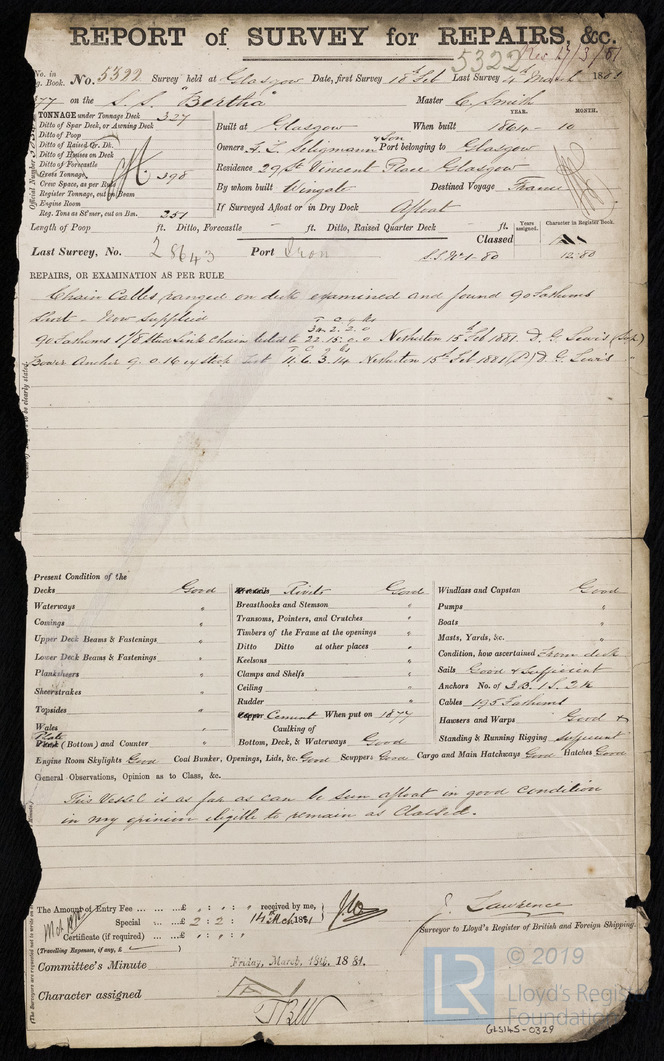 REPORT of SURVEY for REPAIRS, &c.
5322 Rec 17/3/81
No. in Reg. Book. No. 5322 Survey held at Glasgow Date, first Survey 18th Feb Last Survey 4th March 1881
77 on the S.S. "Bertha" Master C. Smith
TONNAGE under Tonnage Deck 327
Ditto of Spar Deck, or Awning Deck
Ditto of Poop
Ditto of Raised Qr. Dk.
Ditto of Houses on Deck
Ditto of Forecastle
Gross Tonnage 398
Crew Space, as per Rule
Register Tonnage, cut on Beam
Engine Room
Reg. Tons as St'mer, cut on Bm. 251
YEAR. MONTH.
Built at Glasgow When built 1864 - 10
Owners A. L. Seligmann & Son Port belonging to Glasgow
Residence 29 St Vincent Place Glasgow
By whom built Wingate Destined Voyage France
If Surveyed Afloat or in Dry Dock Afloat
Length of Poop ft. Ditto, Forecastle - ft. Ditto, Raised Quarter Deck - ft.
Years assigned. Character in Register Book.
Last Survey, No. 28643 Port Iron Classed
S.S. No 1-80 12.80
REPAIRS, OR EXAMINATION AS PER RULE
Chain Cables ranged on deck examined and found 90 fathoms
short - Now supplied
T C q lbs
34. 2. 2. 0
90 fathoms 1 1/8 Stud link chain tested to 22. 15. 0. 0 Netherton 15th Feb 1881. D. G. Lewis (Sup)
T C q lbs
Bower Anchor 9. 0. 16 ex stock Test 11. 6. 3. 14 Netherton 15th Feb 1881 D. G. Lewis "
Present Condition of the
Decks Good
Waterways "
Comings "
Upper Deck Beams & Fastenings "
Lower Deck Beams & Fastenings "
Planksheers "
Sheerstrakes "
Topsides "
Wales "
Plate
Plank (Bottom) and Counter "
Treenails Rivets Good
Breasthooks and Stemson "
Transoms, Pointers, and Crutches "
Timbers of the Frame at the openings "
Ditto Ditto at other places "
Keelsons "
Clamps and Shelfs "
Ceiling "
Rudder "
Copper Cement When put on 1877
Caulking of
Bottom, Deck, & Waterways Good
Windlass and Capstan Good
Pumps "
Boats "
Masts, Yards, &c. "
Condition, how ascertained From deck
Sails Good & Sufficient
Anchors No. of 3 B. 1 S. 2 K
Cables 195 fathoms
Hawsers and Warps Good &
Standing & Running Rigging Sufficient
Engine Room Skylights Good Coal Bunker, Openings, Lids, &c. Good Scuppers Good Cargo and Main Hatchways Good Hatches Good
General Observations, Opinion as to Class, &c.
This Vessel is as far as can be seen afloat in good condition
in my opinion eligible to remain as Classed.
The Amount of Entry Fee ... ... £ : : received by me,
Special ... ... £ 2 : 2 : 14th Mch 1881
Certificate (if required) ... ... £ : :
(Travelling Expenses, if any, £ )
J. Lawrence
Surveyor to Lloyd's Register of British and Foreign Shipping.
Committee's Minute Friday, March, 18th. 1881.
Character assigned
© 2019
LR Lloyd's Register
Foundation
GLS145-0329